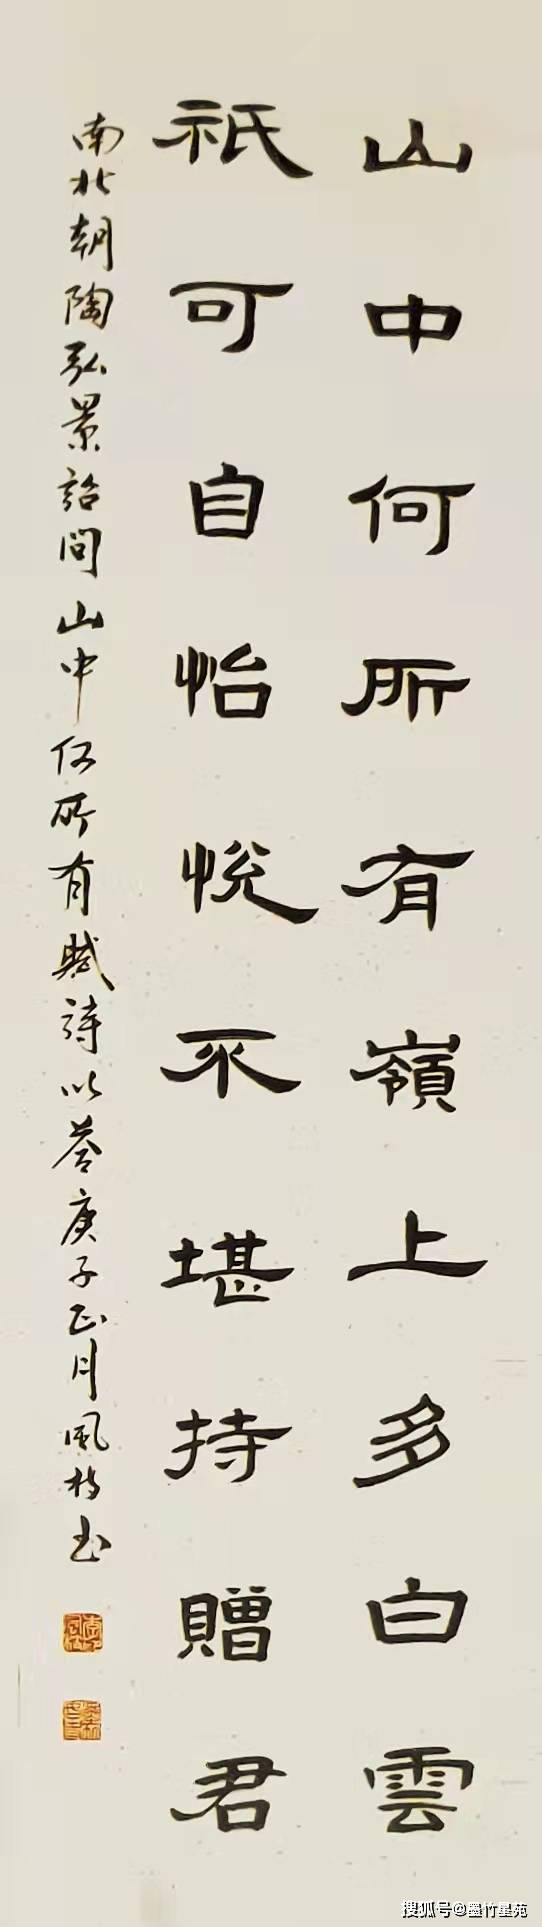 山中何所有嶺上多白雲
祇可自怡悅不堪持贈君
南北朝陶弘景詔問山中何所有賦詩以答庚子正月風書
搜狐号@墨竹星苑